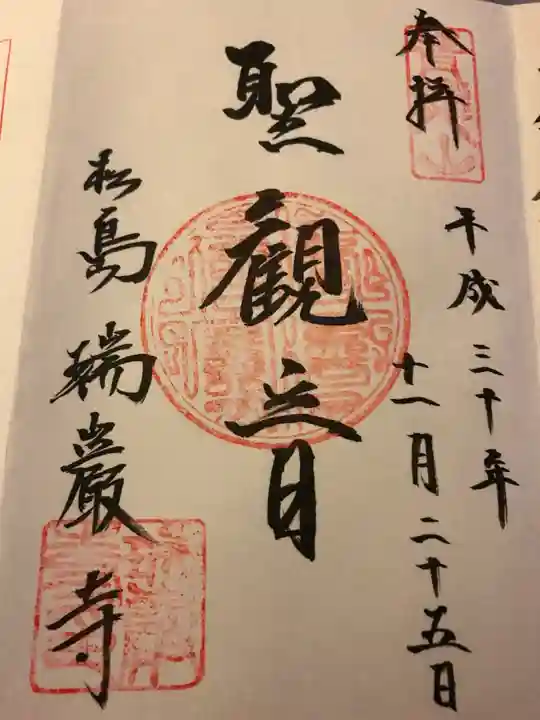 奉拝
平成三十年
十一月二十五日
聖観音
松島瑞巌寺